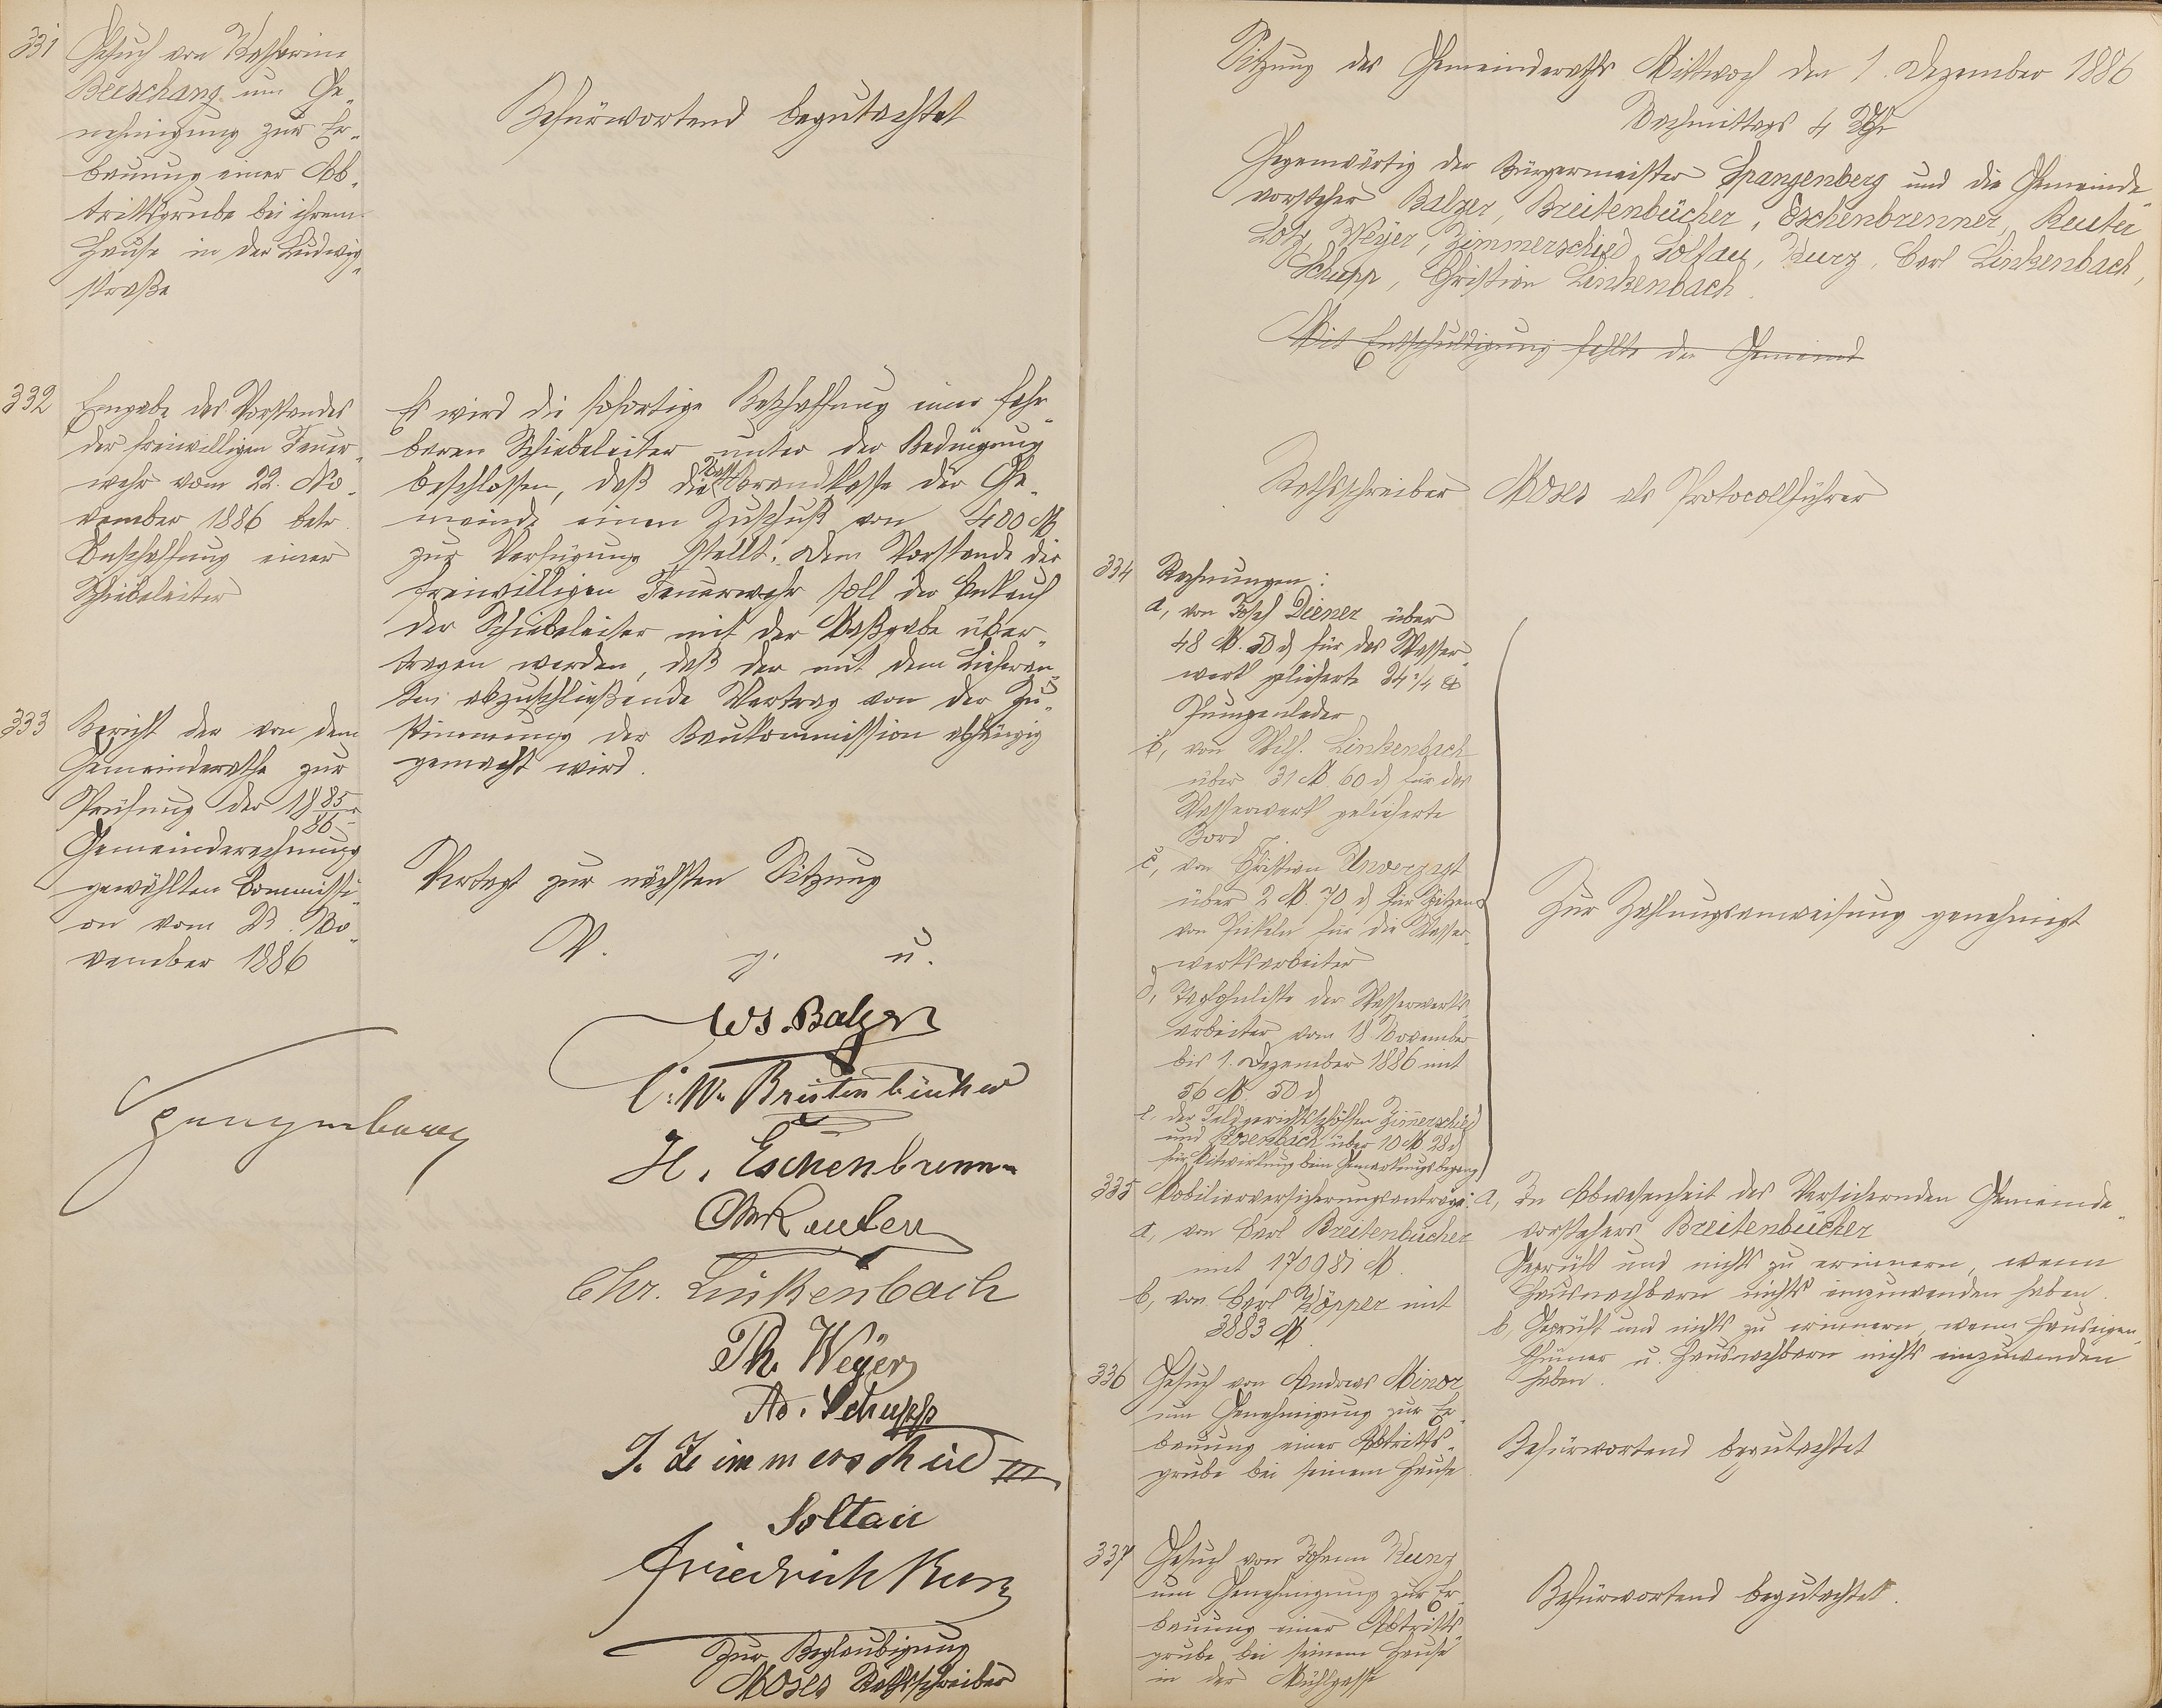 331 Gesuch von Katharine
Beeschang um Ge-
nehmigung zur Er-
bauung einer Ab-
trittsgrube bei ihrem
Hause in der Ludwig-
straße
Befürwortend begutachtet
332 Eingabe des Vorstandes
der freiwilligen Feuer-
wehr vom 22. No-
vember 1886 betr.
Beschaffung einer
Schiebeleiter
Es wird die sofortige Beschaffung einer fahr-
baren Schiebeleiter unter der Bedingung
beschlossen, daß die Brandkasse der Ge-
meinde einen Zuschuß von 400 M
zur Verfügung stellt. Dem Vorstande der
freiwilligen Feuerwehr soll der Ankauf
der Schiebeleiter mit der Maßgabe über-
tragen werden, daß der mit dem Lieferan-
ten abzuschließende Vertrag von der Zu-
stimmung der Baukommission abhängig
gemacht wird.
333 Bericht der von dem
Gemeinderathe zur
Prüfung der 1885/86r
Gemeinderechnung
gewählten Commissi-
on vom 23. No-
vember 1886
Vertagt zur nächsten Sitzung
V. g. u.
Spangenberg
Ws. Balzer
C. W. Breitenbücher
H. Eschenbrenner
Chr. Linkenbach
Ph. Weyer
Ad. Schupp
J. Zimmerschied III
Soltau
Friedrich Kurz
Zur Beglaubigung
Moses Rathsschreiber
Sitzung des Gemeinderaths Mittwoch den 1. Dezember 1886
Nachmittags 4 Uhr
Gegenwärtig der Bürgermeister Spangenberg und die Gemeinde-
vorsteher Balzer, Breitenbücher, Eschenbrenner, Reuter
Lotz, Weyer, Zimmerschied, Soltau, Kurz, Carl Linkenbach,
Schupp, Christian Linkenbach.
Mit Entschuldigung fehlte der Gemeind
Rathsschreiber Moses als Protocollführer
334 Rechnungen:
a, von Josef Diener über
48 M. 50 d für das Wasser-
werk gelieferte 24 1/4 ℔
Pumpenleder
b, von Wilh. Linkenbach
über 31 M. 60 d für das
Wasserwerk gelieferte
Bord
c, von Christian Unverzagt
über 2 M. 70 d für Spitzen
von Pickeln für die Wasser-
werksarbeiter
d, Taglohnliste der Wasserwerks-
arbeiter vom 18 November
bis 1. Dezember 1886 mit
56 M. 50 d
e. der Feldgerichtsschöffen Zimerschied
und Rosenbach über 10 M 28 d
für Mitwirkung beim Gemarkungsbegang
Zur Zahlungsanweisung genehmigt
335 Mobiliarversicherungsanträge:
a, von Carl Breitenbücher
mit 170981 M.
b, von Carl Köpper mit
3883 M.
a, In Abwesenheit des Versichernden Gemeinde-
vorstehers Breitenbücher
Geprüft und nichts zu erinnern, wenn
Hausnachbarn nichts einzuwenden haben.
b, Geprüft und nichts zu erinnern, wenn Hauseigen-
thümer u. Hausnachbarn nichts einzuwenden
haben.
336 Gesuch von Andreas Minor
um Genehmigung zur Er-
bauung einer Abtritts-
grube bei seinem Hause
Befürwortend begutachtet
337 Gesuch von Johann Kunz
um Genehmigung zur Er-
bauung einer Abtritts-
grube bei seinem Hause
in der Mühlgasse
Befürwortend begutachtet.